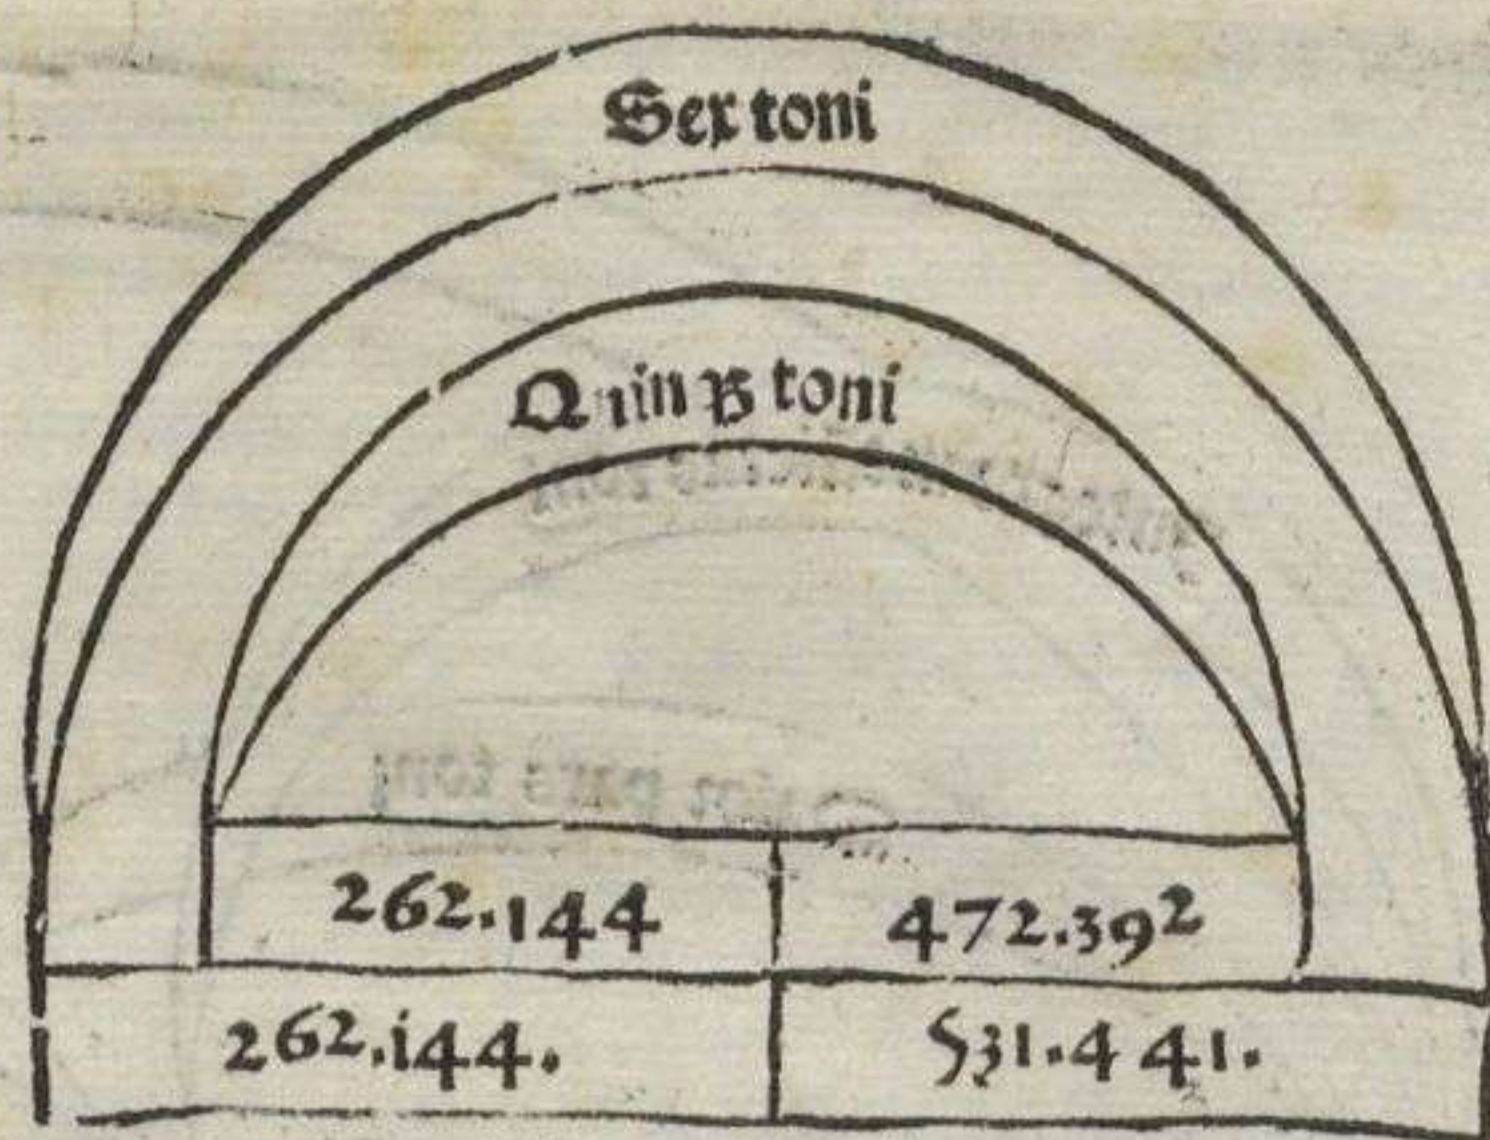 Sex toni
toni
262.144
472.392
262.144.
531.441.